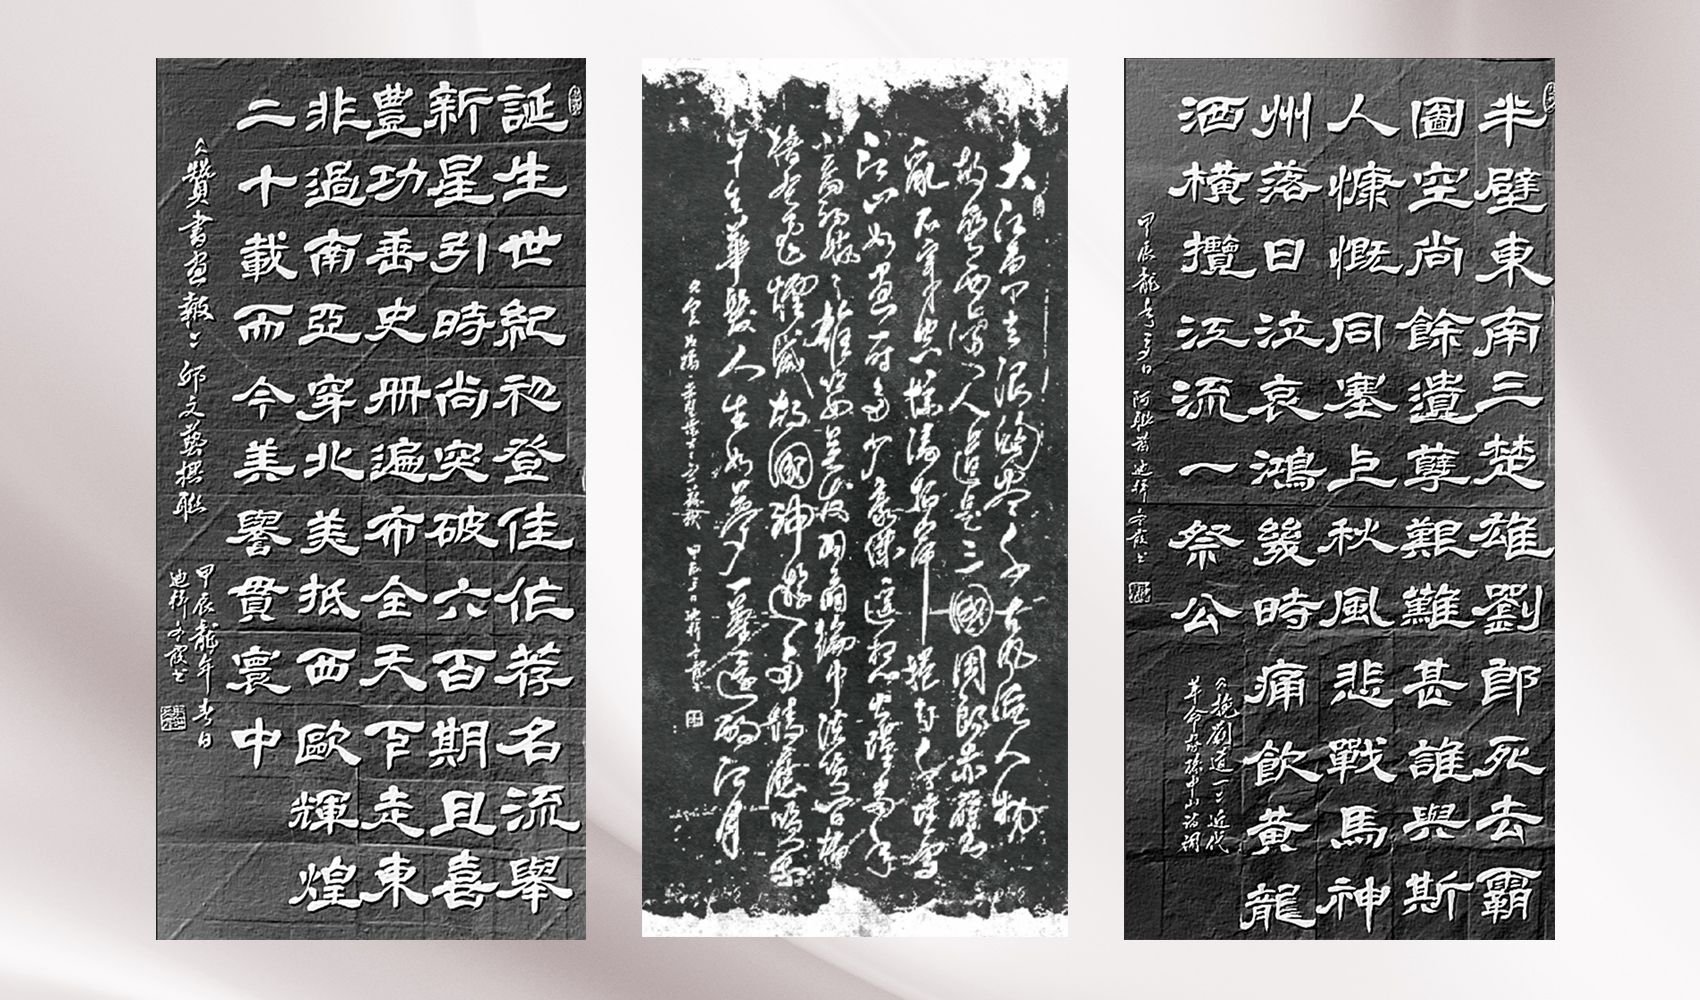 誕生世紀初登佳作荐名流舉
新星引時尚突破六百期且喜
豐功垂史冊遍布全天下走東
非過南亞穿北美抵西歐輝煌
二十載而今美譽貫寰中
贊書畫報 邱文藝撰聯
甲辰龍年春日
大江東去浪淘盡千古風流人物
故壘西邊人道是三國周郎赤壁
亂石穿空驚濤拍岸捲起千堆雪
江山如畫一時多少豪傑遙想公瑾當年
小喬初嫁了雄姿英發羽扇綸巾談笑間檣
櫓灰飛煙滅故國神遊多情應笑我
早生華髮人生如夢一尊還酹江月
半壁東南三楚雄劉郎死去霸
圖空尚餘遺孽艱難甚誰與斯
人慷慨同塞上秋風悲戰馬神
州落日泣哀鴻幾時痛飲黃龍
洒橫攬江流一祭公
挽劉道一 近代
革命家孫中山詩詞
甲辰龍年